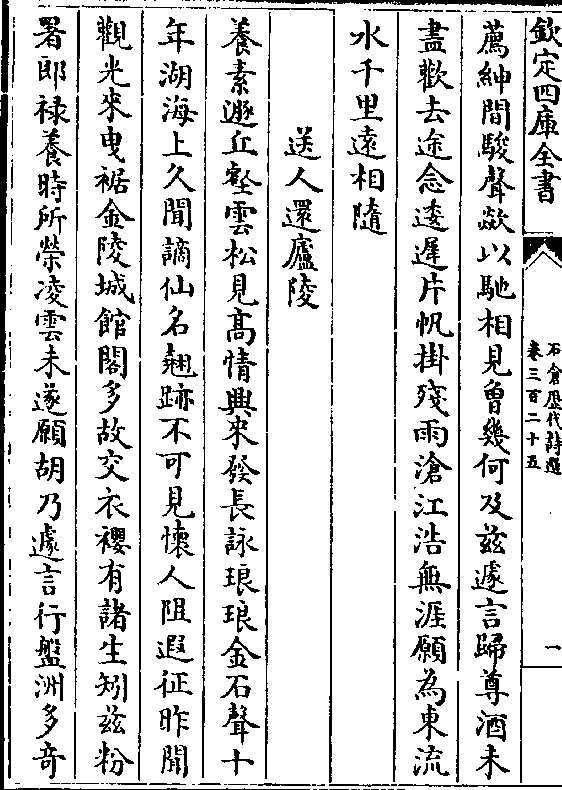 欽定四庫全書
石倉歷代詩選
卷三百二十五
一
薦紳間駿聲歘以馳相見曾幾何及兹遽言歸尊酒未
盡歡去途念逶遲片帆掛殘雨滄江浩無涯願為東流
水千里遠相隨
送人還廬陵
養素遯丘壑雲松見高情興來發長詠琅琅金石聲十
年湖海上久聞謫仙名翹跡不可見懷人阻遐征昨聞
觀光來曳裾金陵城館閣多故交衣襏有諸生矧兹粉
署郎祿養時所榮凌雲未遂願胡乃遽言行盤洲多奇